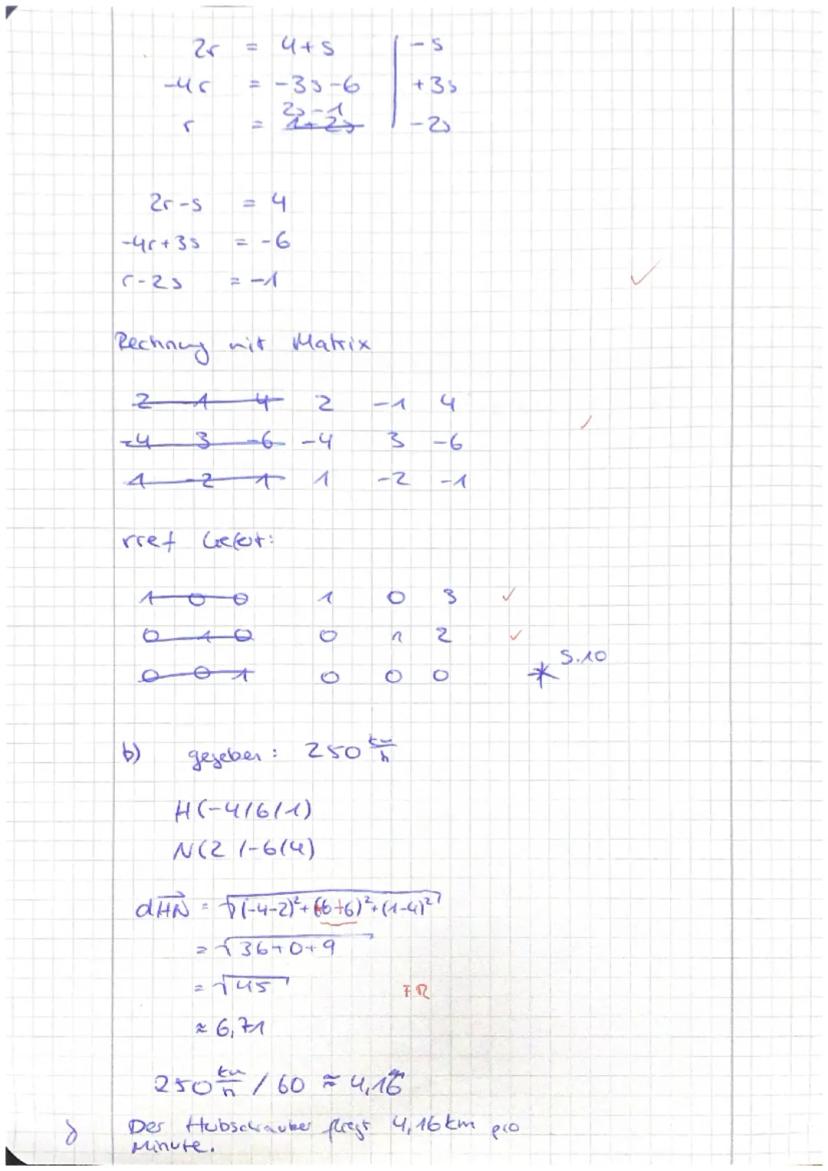 2r = 4+s | -s
-4r = -3s-6 | +3s
2s-1
r = 1+2s | -2s
2r-s = 4
-4r+3s = -6
r-2s = -1
Rechnung mit Matrix
2 1 4 2 -1 4
-4 3 -6 -4 3 -6
1 -2 1 1 -2 -1
rref liefert:
1 0 0 1 0 3
0 1 0 0 1 2
0 0 1 0 0 0 * S.10
b) gegeben: 250 km/h
H(-4/6/1)
N(2/-6/4)
dHN = √(-4-2)²+(6+6)²+(1-4)²
= √36+0+9
= √45 FR
≈ 6,71
250 km/h / 60 ≈ 4,16
Der Hubschrauber fliegt 4,16km pro
Minute.